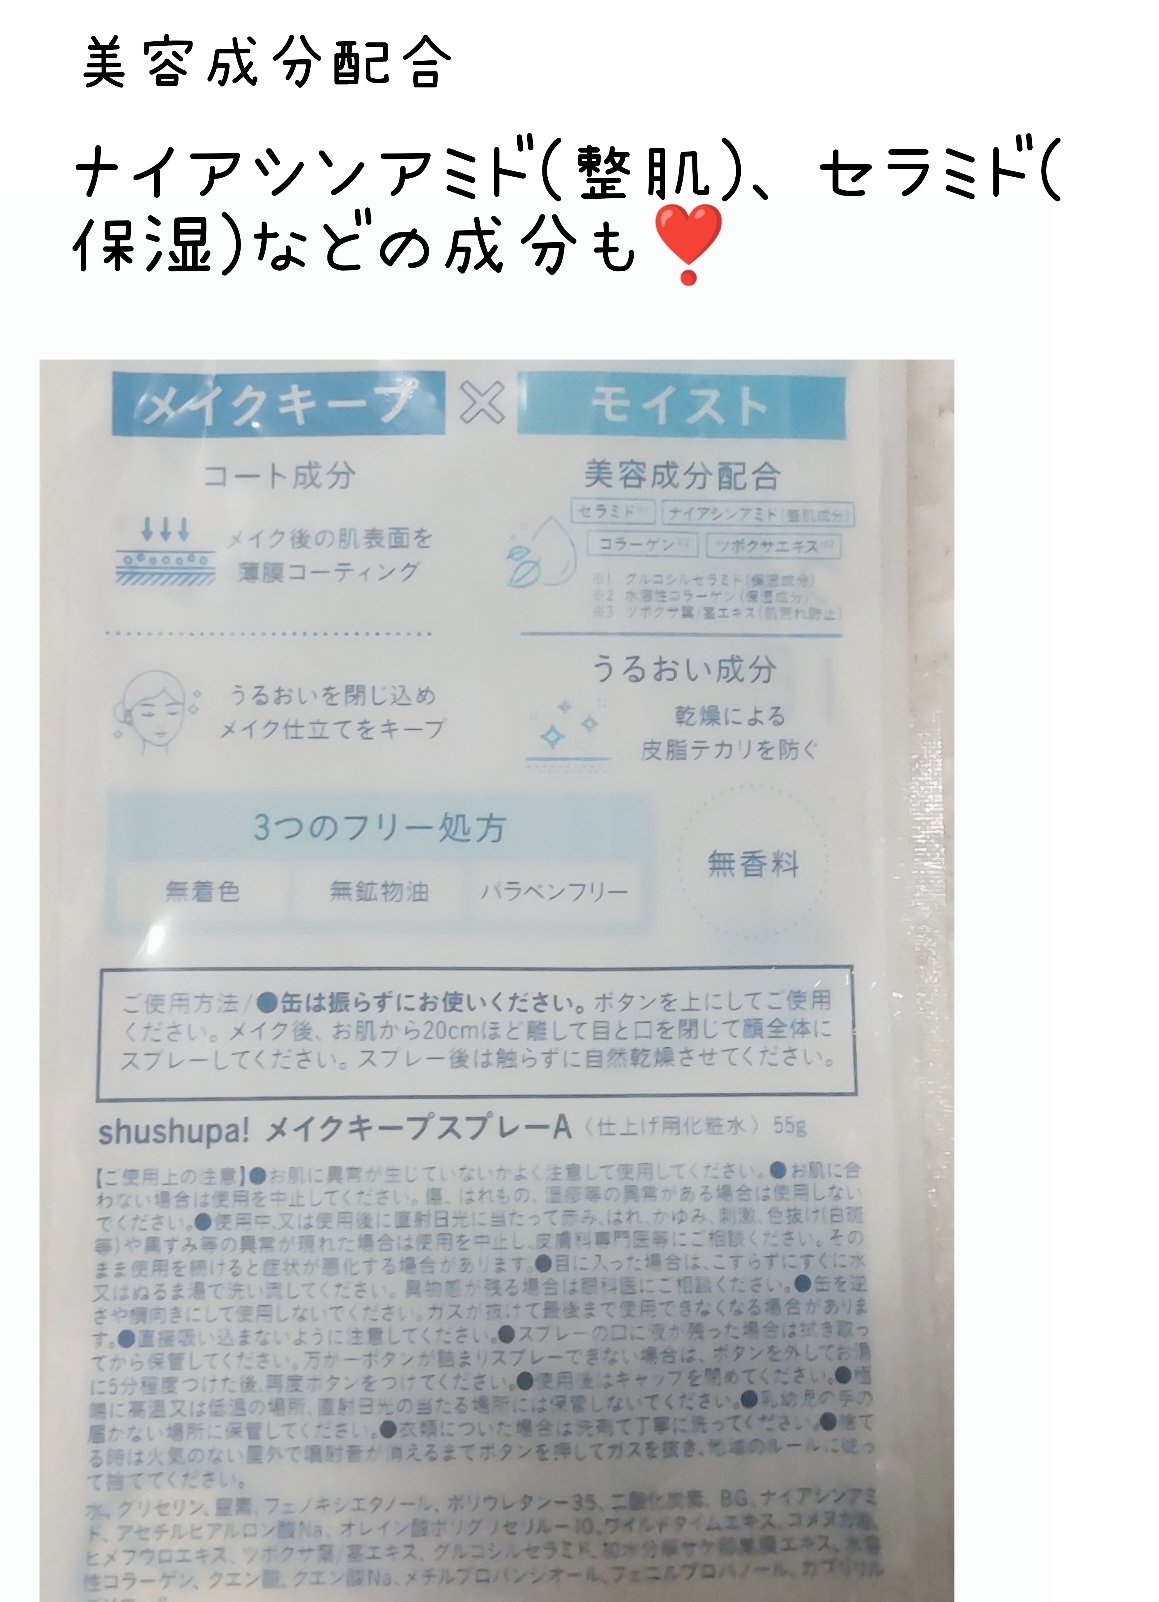 美容成分配合
ナイアシンアミド(整肌)、セラミド(
保湿)などの成分も❣️
メイクキープ × モイスト
コート成分
メイク後の肌表面を
薄膜コーティング
うるおいを閉じ込め
メイク仕立てをキープ
美容成分配合
セラミド※1 ナイアシンアミド(整肌成分)
コラーゲン※2 ツボクサエキス※3
※1 グルコシルセラミド(保湿成分)
※2 水溶性コラーゲン(保湿成分)
※3 ツボクサ葉/茎エキス(肌荒れ防止)
うるおい成分
乾燥による
皮脂テカリを防ぐ
3つのフリー処方
無着色 無鉱物油 パラベンフリー
無香料
ご使用方法/●缶は振らずにお使いください。ボタンを上にしてご使用
ください。メイク後、お肌から20cmほど離して目と口を閉じて顔全体に
スプレーしてください。スプレー後は触らずに自然乾燥させてください。
shushupa! メイクキープスプレーA〈仕上げ用化粧水〉55g
【ご使用上の注意】●お肌に異常が生じていないかよく注意して使用してください。●お肌に合
わない場合は使用を中止してください。傷、はれもの、湿疹等の異常がある場合は使用しない
でください。●使用中、又は使用後に直射日光に当たって赤み、はれ、かゆみ、刺激、色抜け(白斑
等)や黒ずみ等の異常が現れた場合は使用を中止し、皮膚科専門医等にご相談ください。その
まま使用を続けると症状が悪化する場合があります。●目に入った場合は、こすらずにすぐに水
又はぬるま湯で洗い流してください。異物感が残る場合は眼科医にご相談ください。●缶を逆
さや横向きにして使用しないでください。ガスが抜けて最後まで使用できなくなる場合がありま
す。●直接吸い込まないように注意してください。●スプレーの口に液が残った場合は拭き取っ
てから保管してください。万が一ボタンが詰まりスプレーできない場合は、ボタンを外してお湯
に5分程度つけた後、再度ボタンをつけてください。●使用後はキャップを閉めてください。●極
端に高温又は低温の場所、直射日光の当たる場所には保管しないでください。●乳幼児の手の
届かない場所に保管してください。●衣類についた場合は洗剤で丁寧に洗ってください。●捨て
る時は火気のない屋外で噴射音が消えるまでボタンを押してガスを抜き、地域のルールに従っ
て捨ててください。
水、グリセリン、窒素、フェノキシエタノール、ポリウレタン-35、二酸化炭素、BG、ナイアシンアミ
ド、アセチルヒアルロン酸Na、オレイン酸ポリグリセリル-10、ワイルドタイムエキス、コメヌカ
ヒメフウロエキス、ツボクサ葉/茎エキス、グルコシルセラミド、加水分解サケ卵巣膜エキス、水溶
性コラーゲン、クエン酸、クエン酸Na、メチルプロパンジオール、フェニルプロパノール、カプリリル